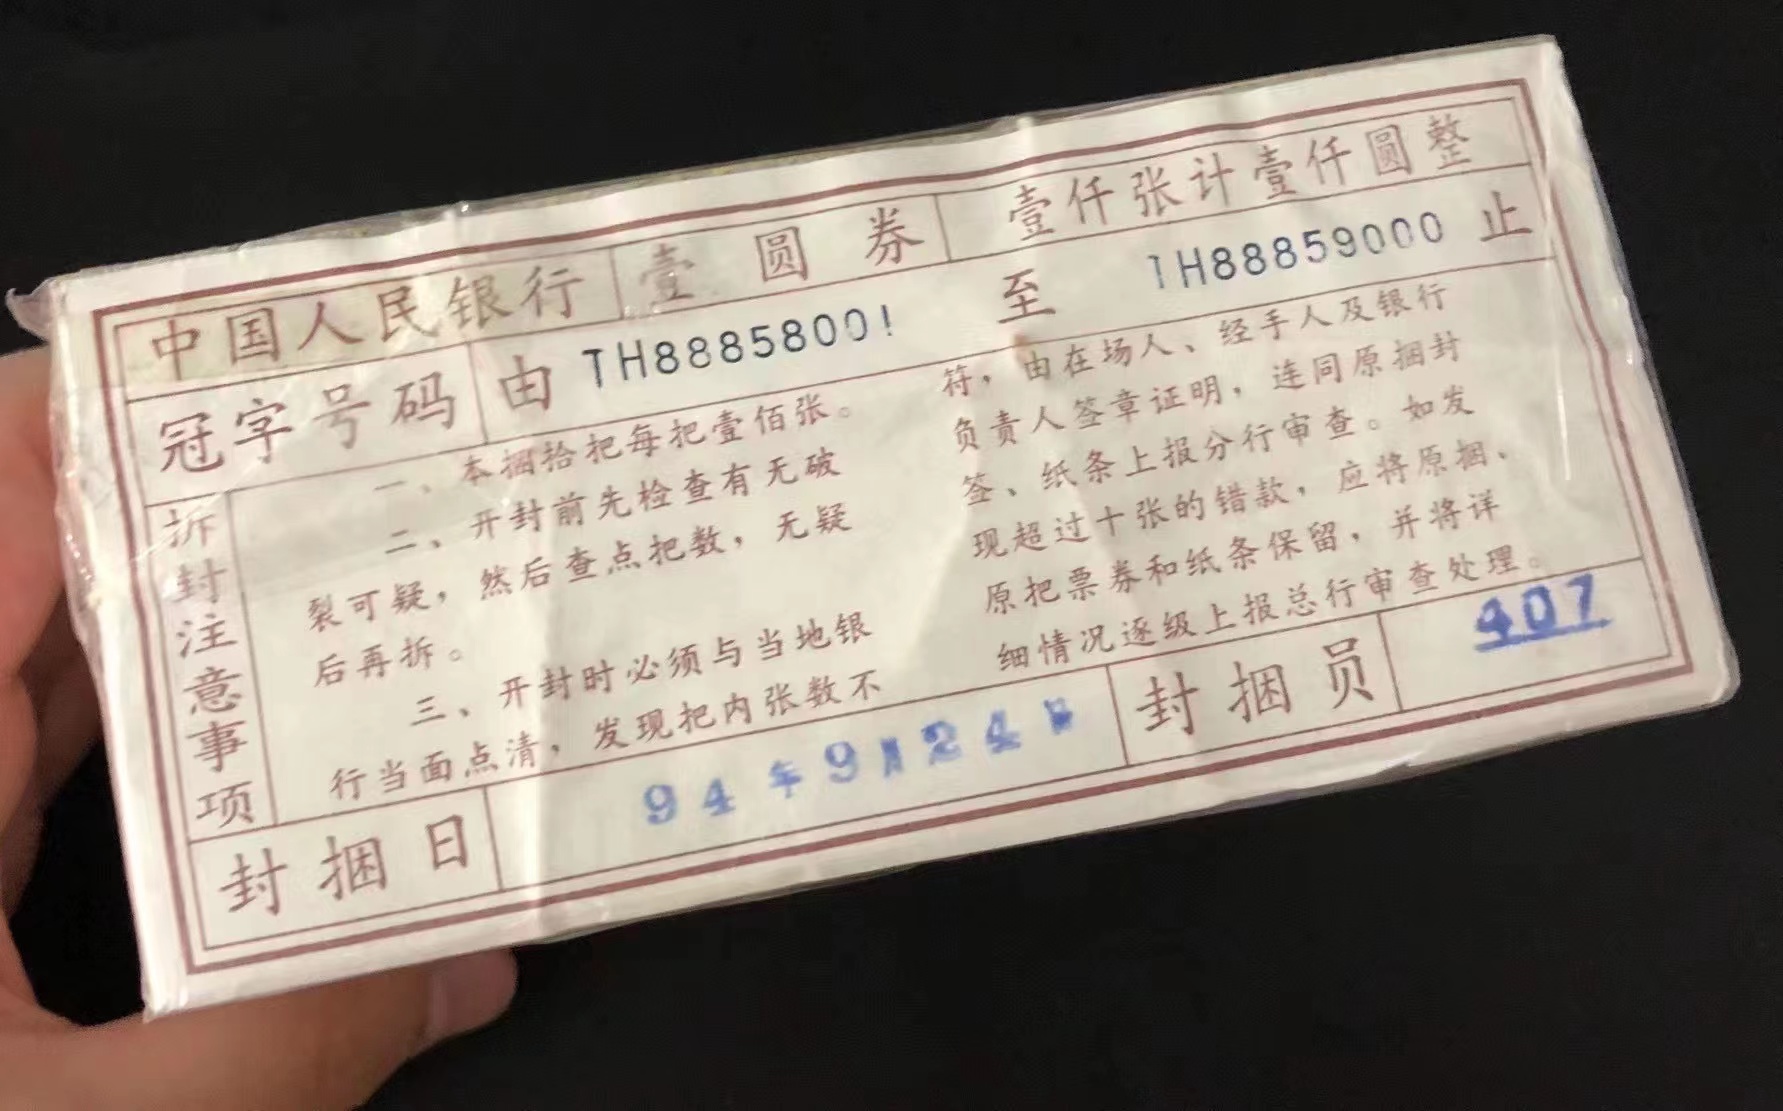 中国人民银行 壹圆券 壹仟张计壹仟圆整
冠字号码 由 TH88858001 至 TH88859000 止
拆封注意事项
一、本捆拾把每把壹佰张。
二、开封前先检查有无破
裂可疑，然后查点把数，无疑
后再拆。
三、开封时必须与当地银
行当面点清，发现把内张数不
符，由在场人、经手人及银行
负责人签章证明，连同原捆封
签、纸条上报分行审查。如发
现超过十张的错款，应将原捆、
原把票券和纸条保留，并将详
细情况逐级上报总行审查处理。
封捆日 94年9月24日 封捆员 407